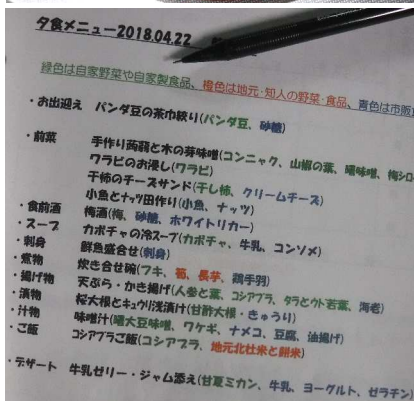 夕食メニュー2018.04.22
緑色は自家野菜や自家製食品、橙色は地元・知人の野菜・食品、青色は市販
・お出迎え パンダ豆の茶巾絞り(パンダ豆、砂糖)
・前菜 手作り蒟蒻と木の芽味噌(コンニャク、山椒の葉、曙味噌、梅シロ
ワラビのお浸し(ワラビ)
干柿のチーズサンド(干し柿、クリームチーズ)
小魚とナッツ田作り(小魚、ナッツ)
・食前酒 梅酒(梅、砂糖、ホワイトリカー)
・スープ カボチャの冷スープ(カボチャ、牛乳、コンソメ)
・刺身 鮮魚盛合せ(刺身)
・煮物 炊き合せ碗(フキ、筍、長芋、鶏手羽)
・揚げ物 天ぷら・かき揚げ(人参と葉、コシアブラ、タラとウド若葉、海老)
・漬物 桜大根とキュウリ浅漬け(甘酢大根・きゅうり)
・汁物 味噌汁(曙大豆味噌、ワケギ、ナメコ、豆腐、油揚げ)
・ご飯 コシアブラご飯(コシアブラ、地元北杜米と餅米)
・デザート 牛乳ゼリー・ジャム添え(甘夏ミカン、牛乳、ヨーグルト、ゼラチン)